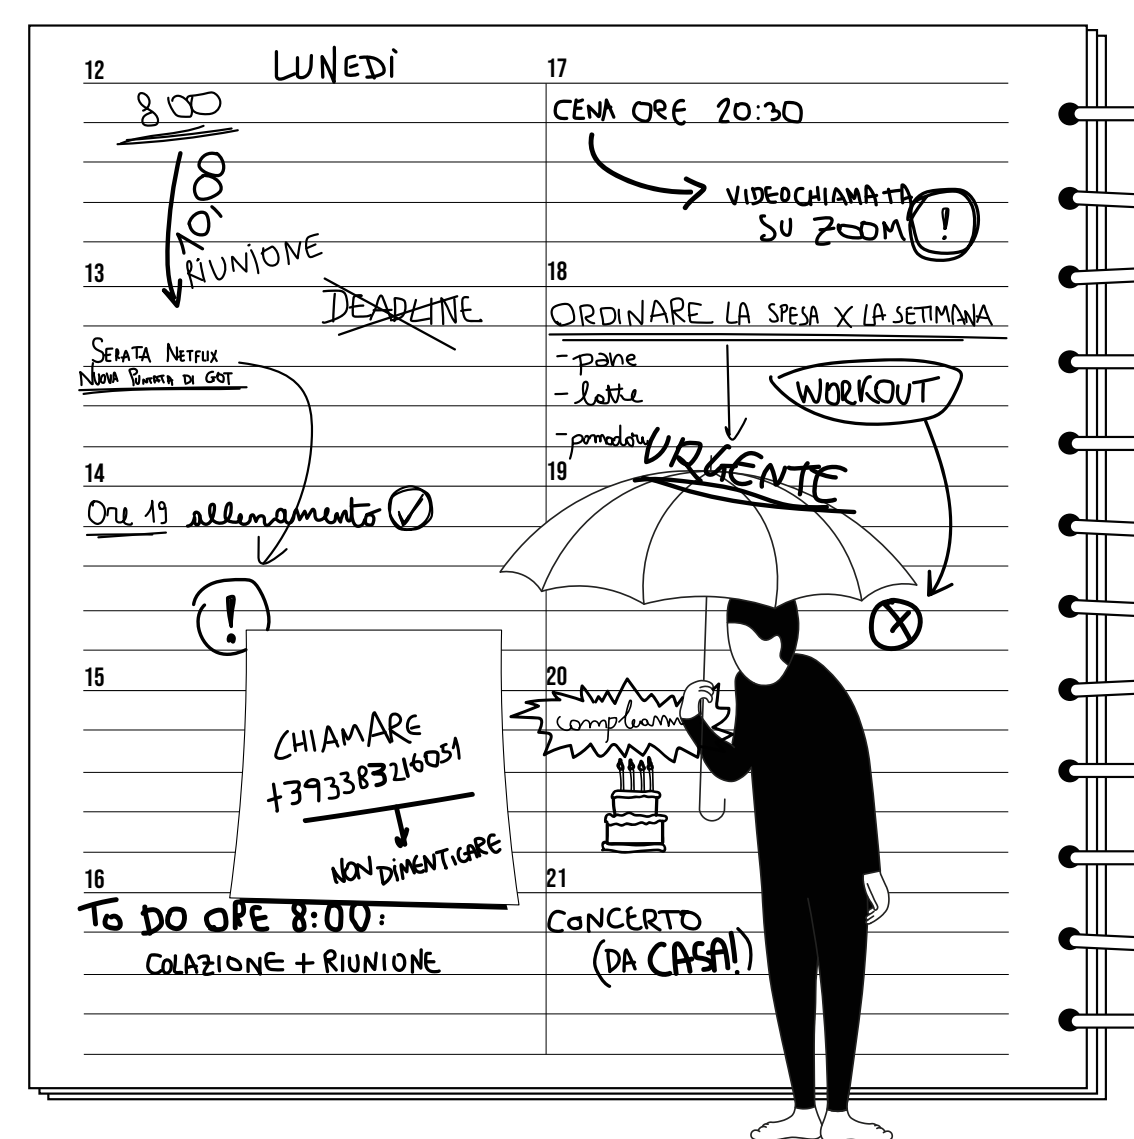 12
LUNEDÌ
8 00
10,00
RIUNIONE
13
DEADLINE
SERATA NETFLIX
NUOVA PUNTATA DI GOT
14
Ore 19 allenamento
!
15
CHIAMARE
+393383216051
NON DIMENTICARE
16
TO DO ORE 8:00:
COLAZIONE + RIUNIONE
17
CENA ORE 20:30
VIDEOCHIAMATA
SU ZOOM !
18
ORDINARE LA SPESA X LA SETIMANA
- pane
- latte
- pomodori
WORKOUT
URGENTE
19
X
20
complean
21
CONCERTO
(DA CASA!)